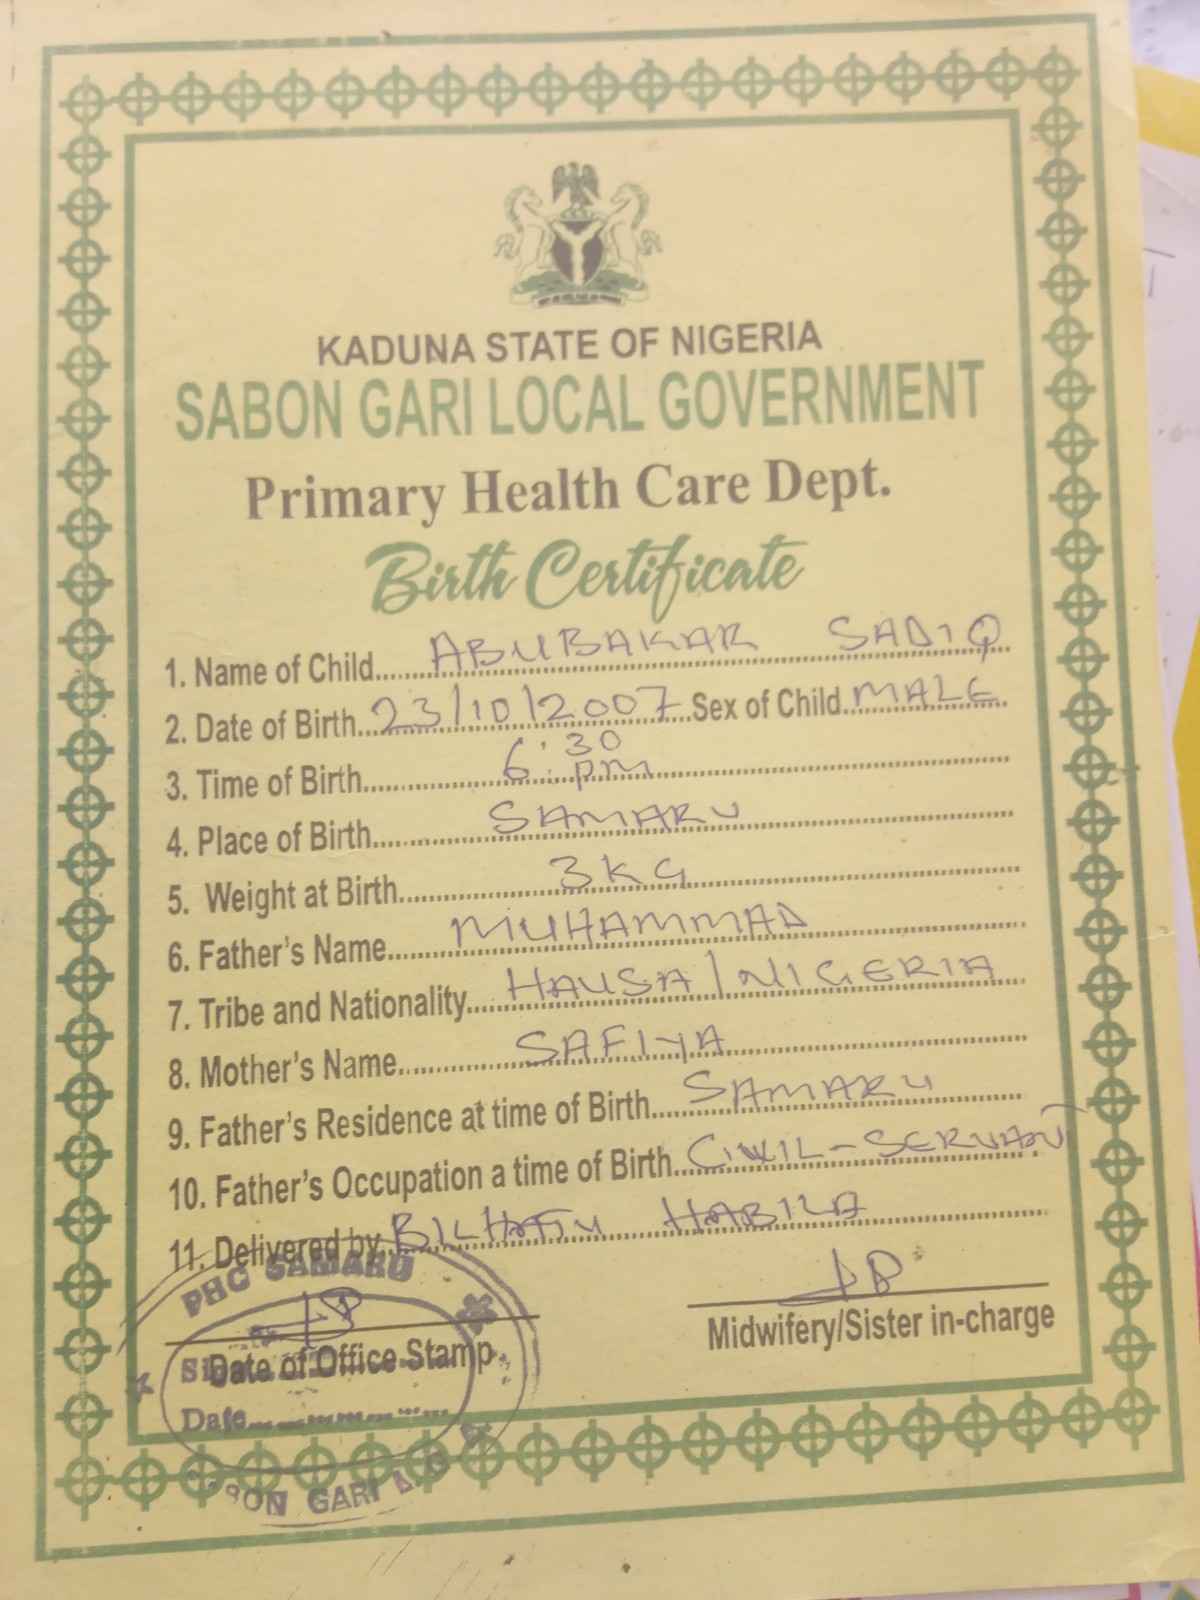 KADUNA STATE OF NIGERIA
SABON GARI LOCAL GOVERNMENT
Primary Health Care Dept.
Birth Certificate
1. Name of Child ABUBAKAR SADIQ
2. Date of Birth 23/10/2007 Sex of Child MALE
3. Time of Birth 6:30 pm
4. Place of Birth SAMARU
5. Weight at Birth 3KG
6. Father's Name MUHAMMAD
7. Tribe and Nationality HAUSA/NIGERIA
8. Mother's Name SAFIYA
9. Father's Residence at time of Birth SAMARU
10. Father's Occupation a time of Birth CIVIL-SERVANT
11. Delivered by BILHATU HABILA
PHC SAMARU
Date of Office Stamp
Midwifery/Sister in-charge
Date
GARI